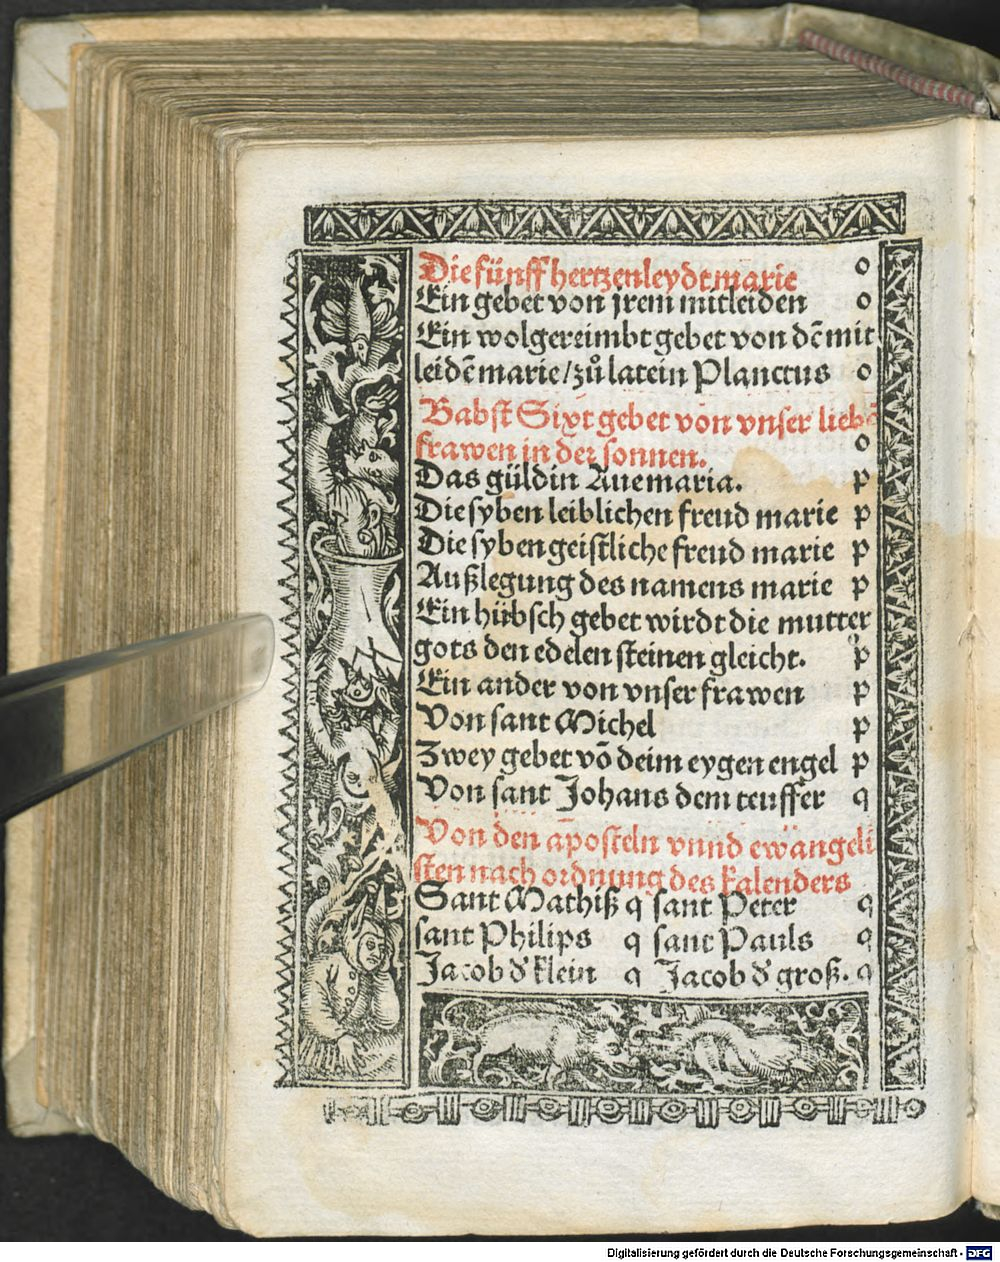 Die fünff hertzenleydt marie o
Ein gebet von jrem mitleiden o
Ein wolgereimbt gebet von dē mit
leidē marie / zů latein Planctus o
Babst Sixt gebet von vnser liebē
frawen in der sonnen. o
Das güldin Auemaria. p
Die syben leiblichen freud marie p
Die syben geistliche freud marie p
Außlegung des namens marie p
Ein hübsch gebet wirdt die mutter
gots den edelen steinen gleicht. p
Ein ander von vnser frawen p
Von sant Michel p
Zwey gebet vō deim eygen engel p
Von sant Johans dem teuffer q
Von den aposteln vnnd ewangeli
sten nach ordnung des kalenders
Sant Mathiß q sant Peter q
sant Philips q sant Pauls q
Jacob d' klein q Jacob d' groß. q
Digitalisierung gefördert durch die Deutsche Forschungsgemeinschaft - DFG